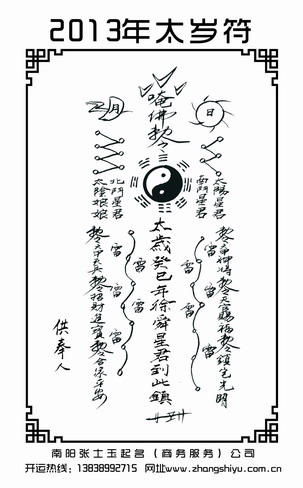 2013年太岁符
唵佛敕令
月
日
北斗星君
太陰娘娘
太陽星君
南斗星君
太歲癸巳年徐舜星君到此鎮
雷
雷
雷
雷
雷
雷
雷
敕令招財進寶敕令合家平安
敕令天官賜福敕令鎮宅光明
供奉人
南阳张士玉起名(商务服务)公司
开运热线：13838992715 网址www.zhangshiyu.com.cn